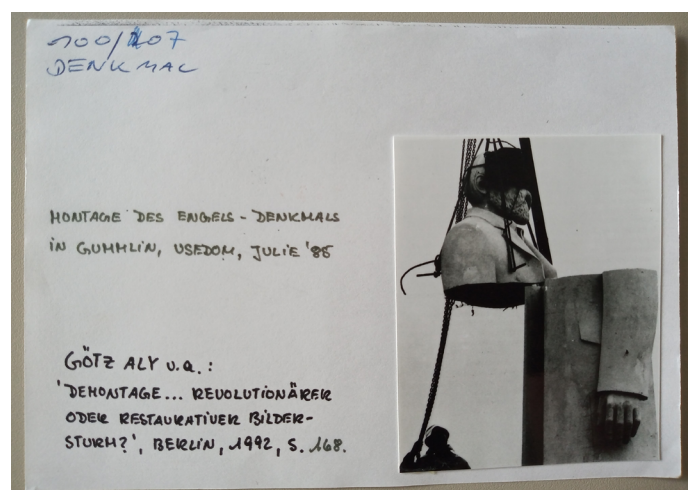 100/107
DENKMAL
MONTAGE DES ENGELS-DENKMALS
IN GUMMLIN, USEDOM, JULIE '85
GÖTZ ALY U.A.:
'DEMONTAGE... REVOLUTIONÄRER
ODER RESTAURATIVER BILDER-
STURM?', BERLIN, 1992, S. 168.